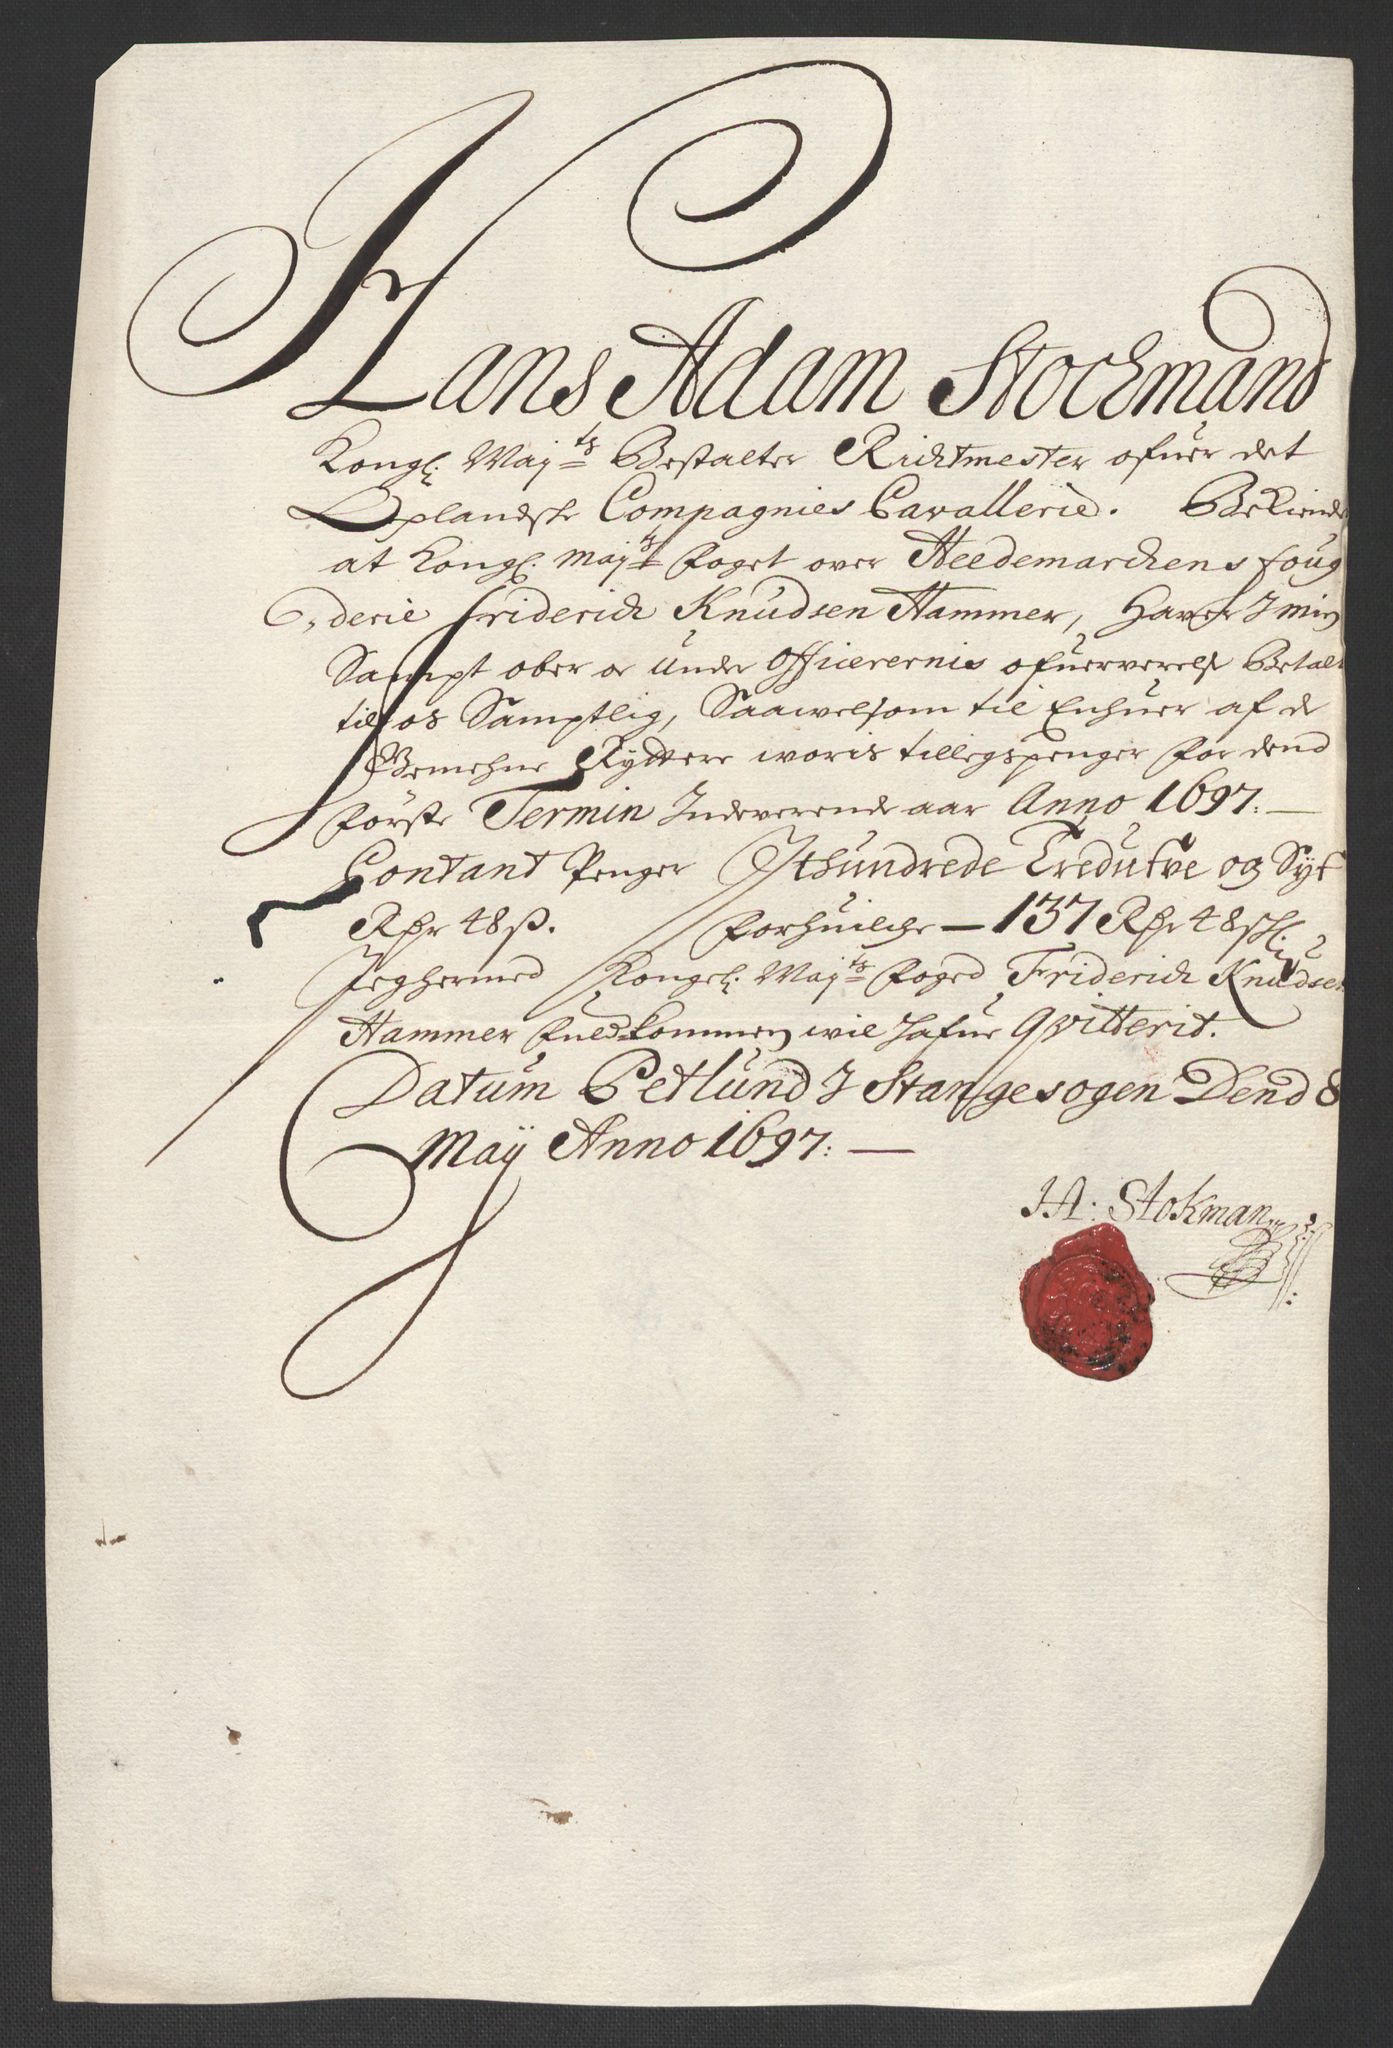 Hans Adam Stockmand
Kongl: May:ts Bestalter Richtmester ofuer det
Oplandske Compagnies Cavallerie. Bekiender
at Kongl: May:ts foget over Heedemarckens foug
derie Friderich Knudsen Hammer, Haver I min
Sampt ober oc Under Officerernis ofuerverelse Betalt
til os Samptlig, Saawelsom til Enhuer af de
Gemehne Ryttere woris tillegspenger for dend
förste Termin Indeverende aar Anno 1697:
Contant Penger Ithundrede Tredutve og Syf
Rdr 48 ß. forhuilche 137 Rdr 48 sk:
Jeg hermed Kongel: May:ts foged Friderich Knudsen
Hammer fuldkommen wil hafue Qvitterit.
Datum Petlund I Stangesogen Dend 8
Maÿ Anno 1697:
HA: Stokman